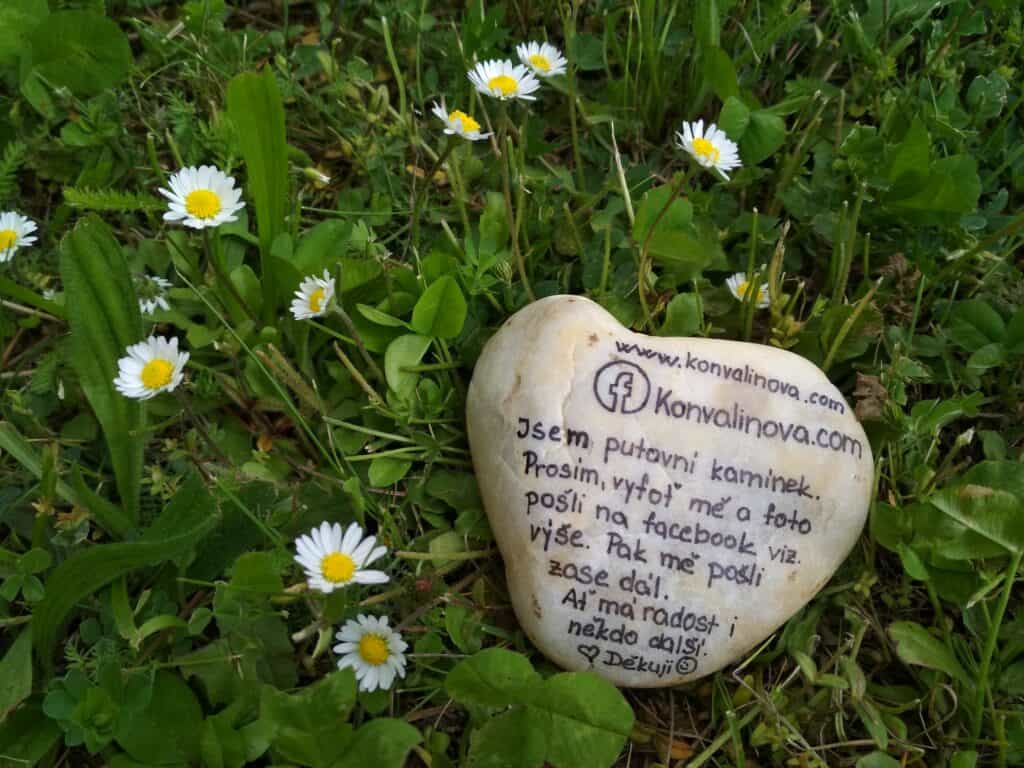 www.konvalinova.com
f Konvalinova.com
Jsem putovní kamínek.
Prosím, vyfoť mě a foto
pošli na facebook viz.
výše. Pak mě pošli
zase dál.
Ať má radost i
někdo další.
♡ Děkuji ☺